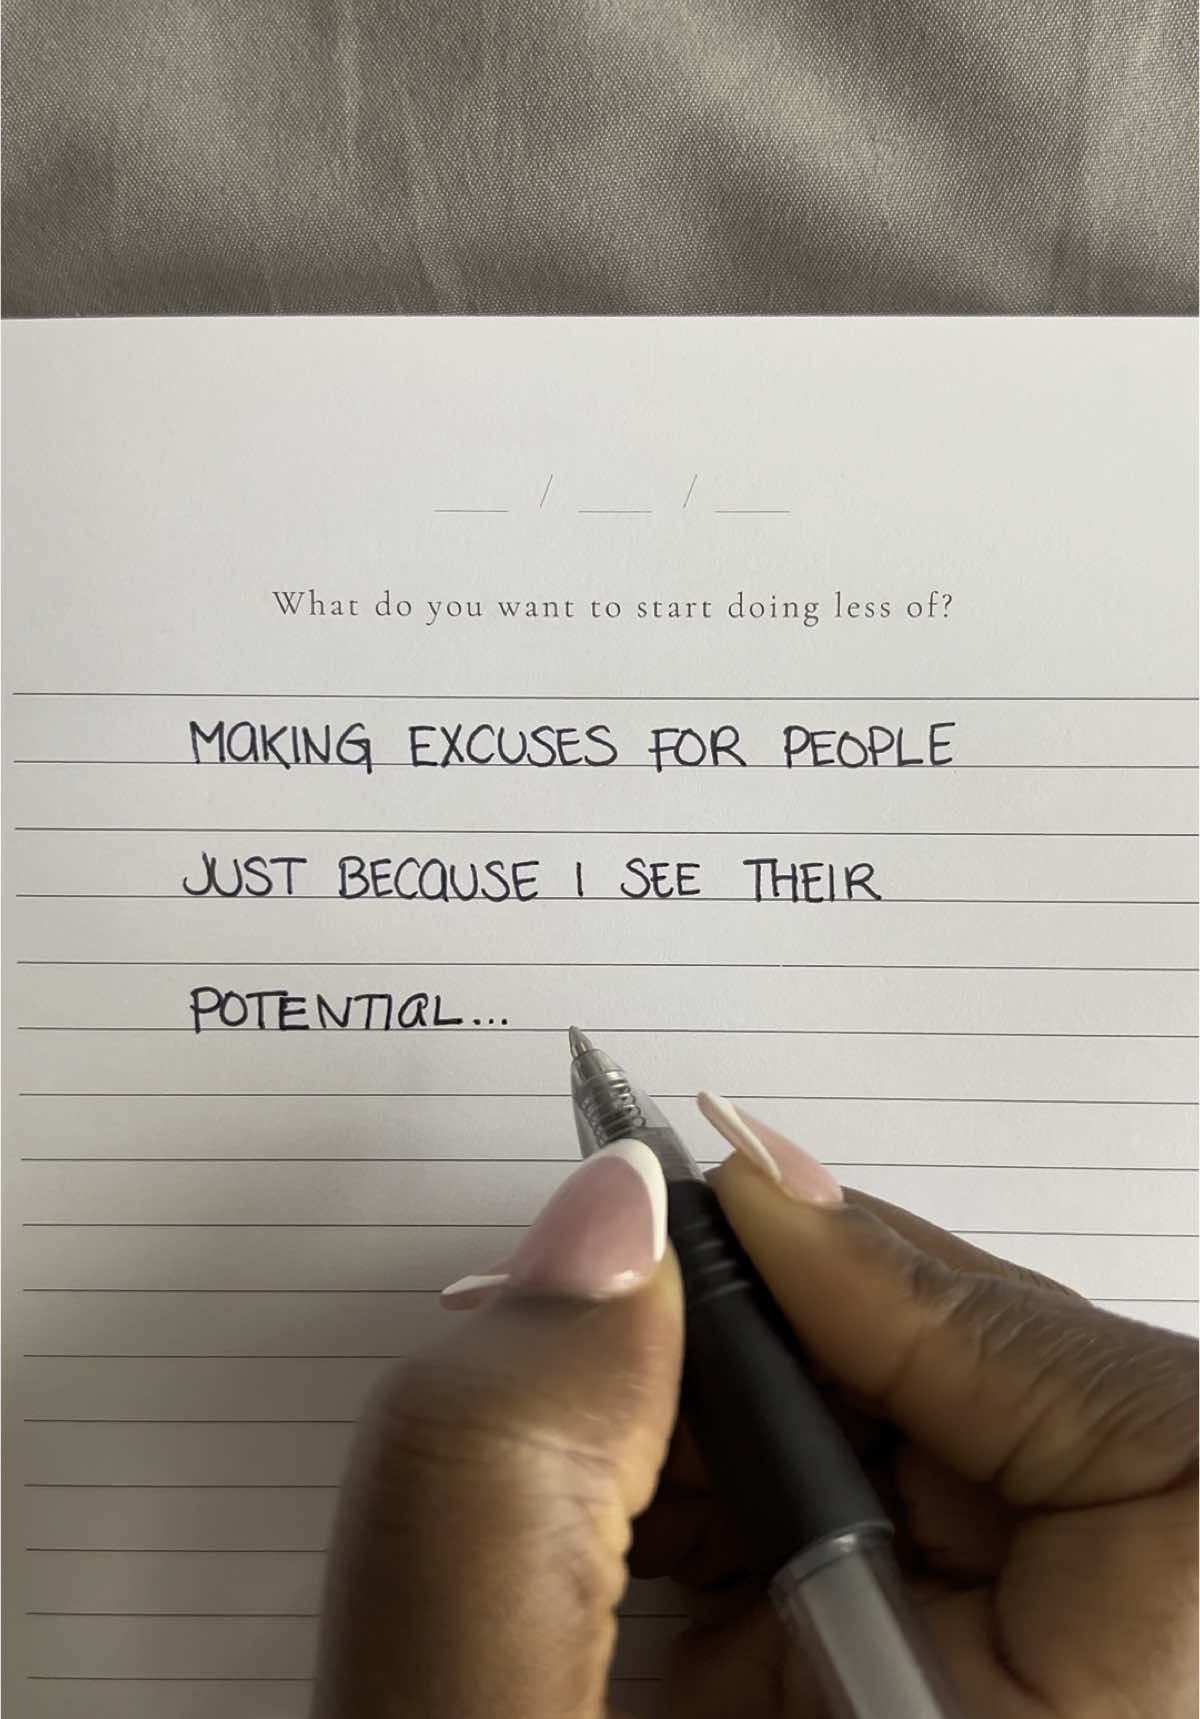 ___ / ___ / ___
What do you want to start doing less of?
MAKING EXCUSES FOR PEOPLE
JUST BECAUSE I SEE THEIR
POTENTIAL...